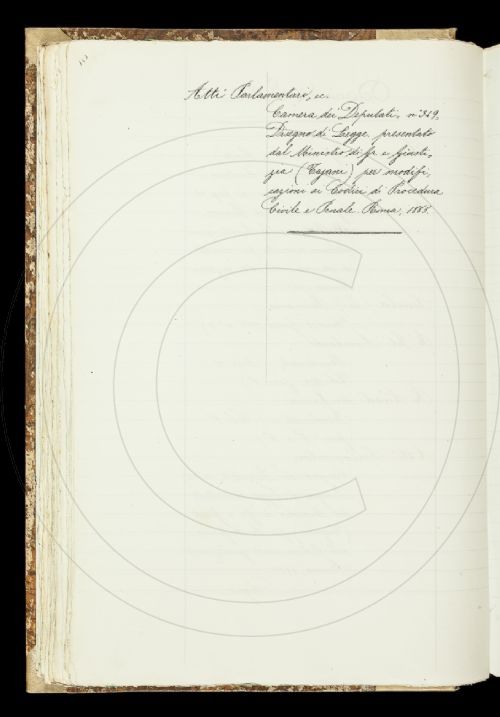 Atti Parlamentari, ec.
Camera dei Deputati, n° 349,
Disegno di Legge presentato
dal Ministro di Gr. e Giusti,
zia (Tajani) per modifi,
cazioni ai Codici di Procedura
Civile e Penale. Roma, 1885.